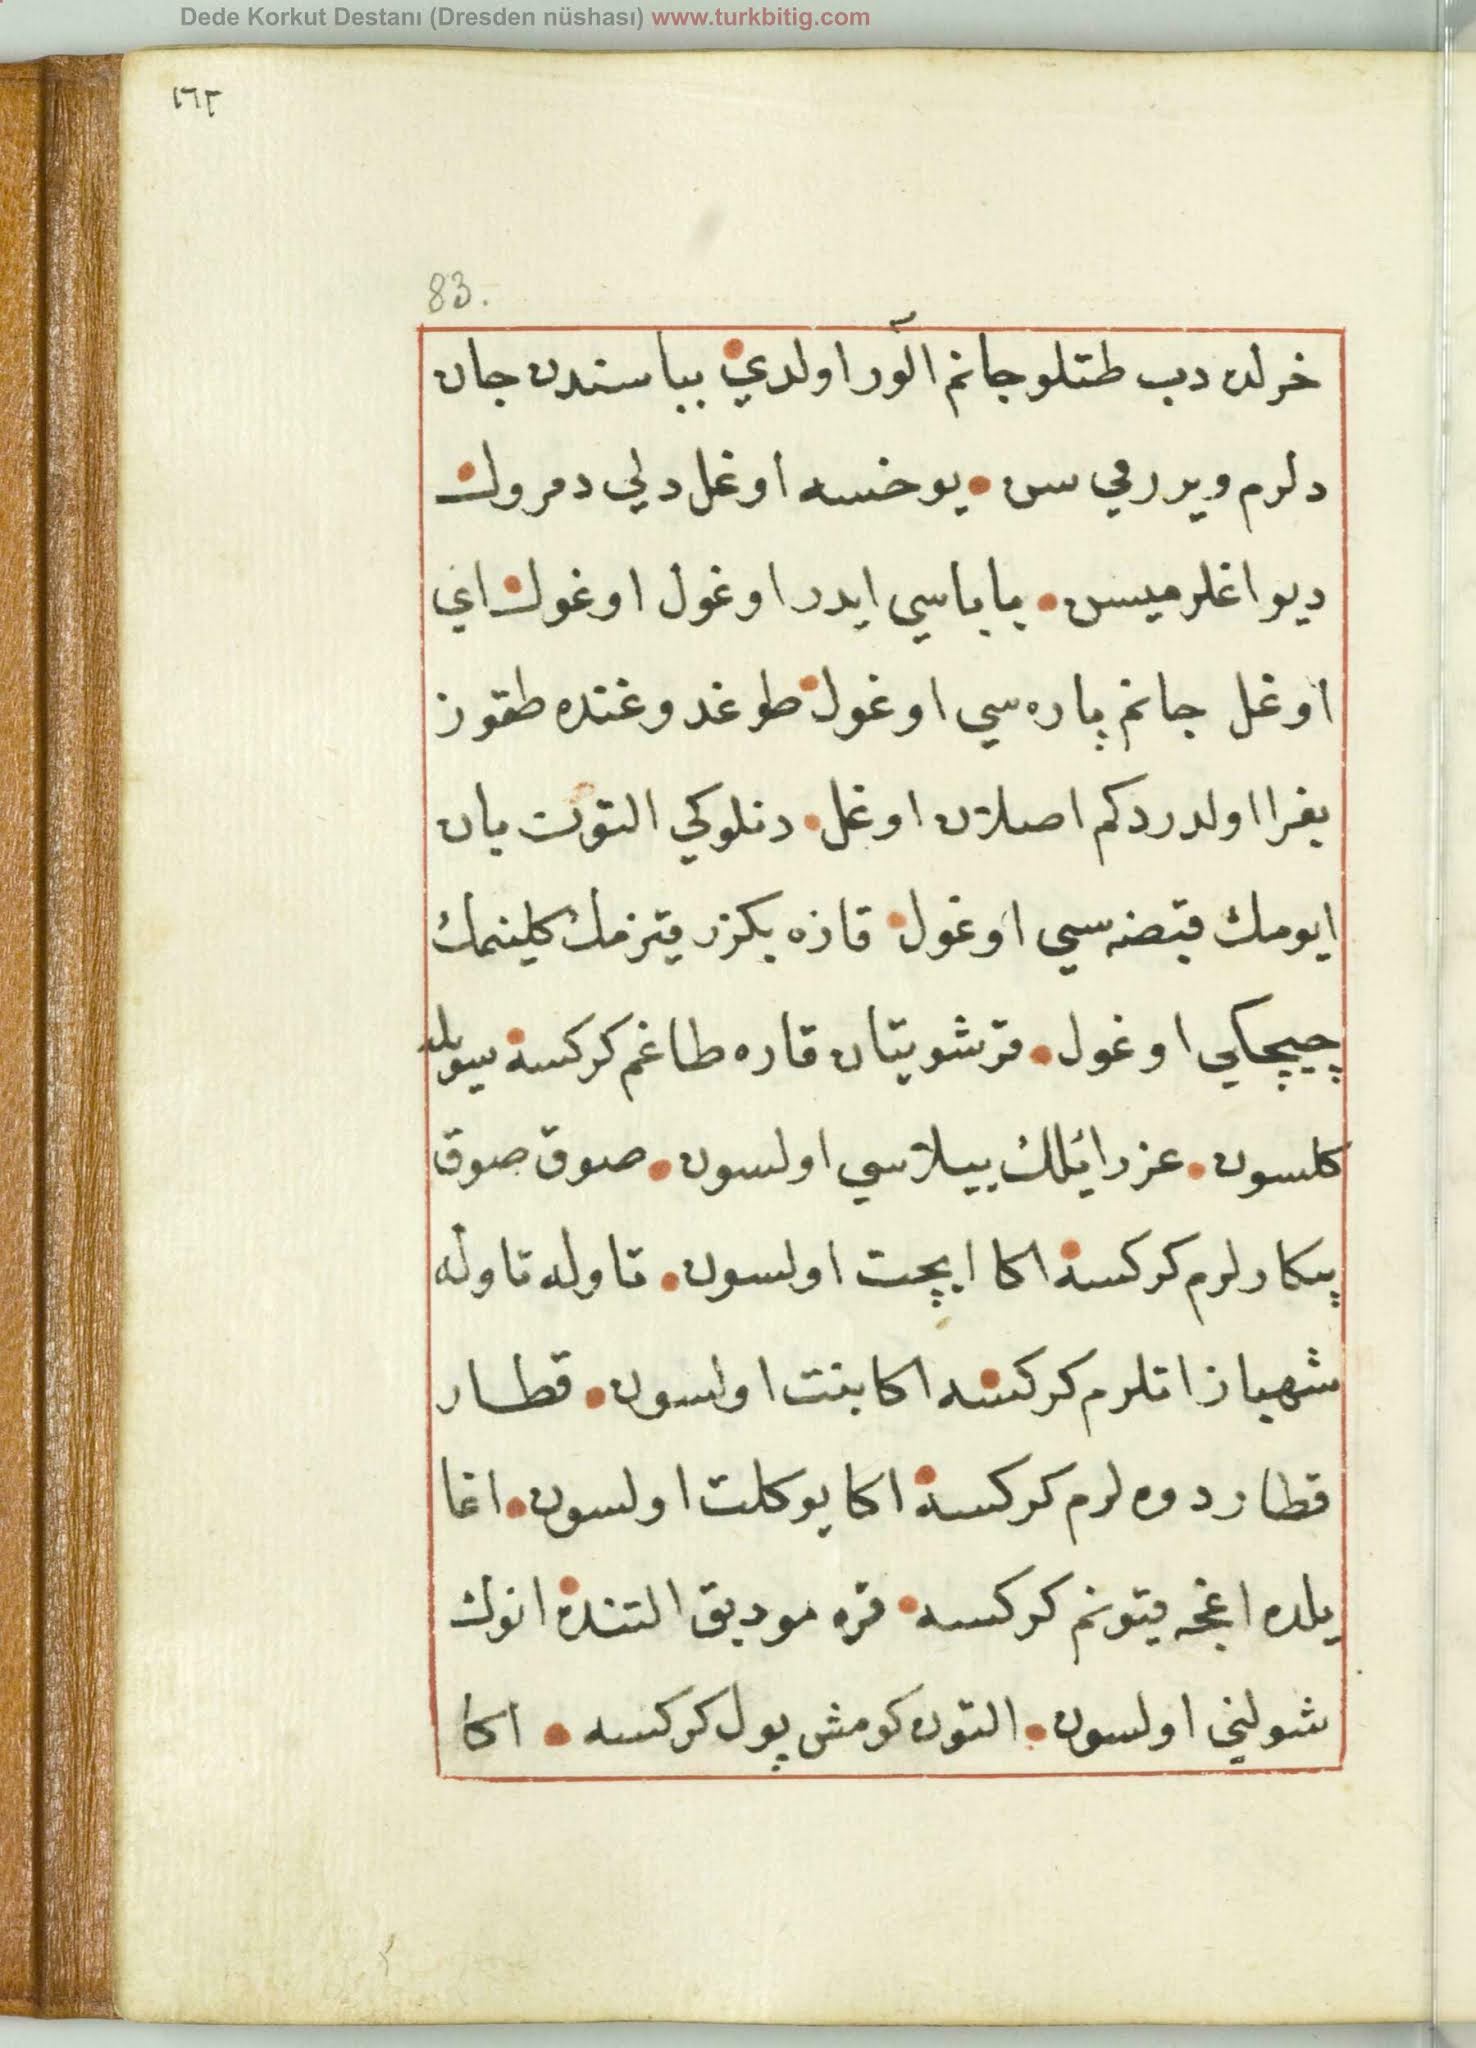 Dede Korkut Destanı (Dresden nüshası) www.turkbitig.com
١٦٢
83.
خرلدن دب طتلو جانم آلور اولدي بباسندن جان
دلرم ويررمي سن • يوخسه اوغل دلي دمرول
ديو اغلرميسن • باباسي ايدر اوغول اوغول اي
اوغل جانم پاره سي اوغول طوغدوغنده طقوز
بغرا اولدردكم اصلان اوغل • دنلوكي التون بان
ايومك قبضه سي اوغول • قازه بكزر قيزمك كلينمك
چيچكي اوغول • قرشو يتان قاره طاغم كركسه سويله
كلسون • عزرائلك ييلاسي اولسون • صوق صوق
پيكارلرم كركسه اكا ايچت اولسون • تاوله تاوله
شهباز اتلرم كركسه اكا بنت اولسون • قطار
قطار دوه لرم كركسه اكا يوكلت اولسون • اغا
يلده اغجه قيونم كركسه • قره مودبق التنده انوك
شوليني اولسون • التون كومش پول كركسه • اكا